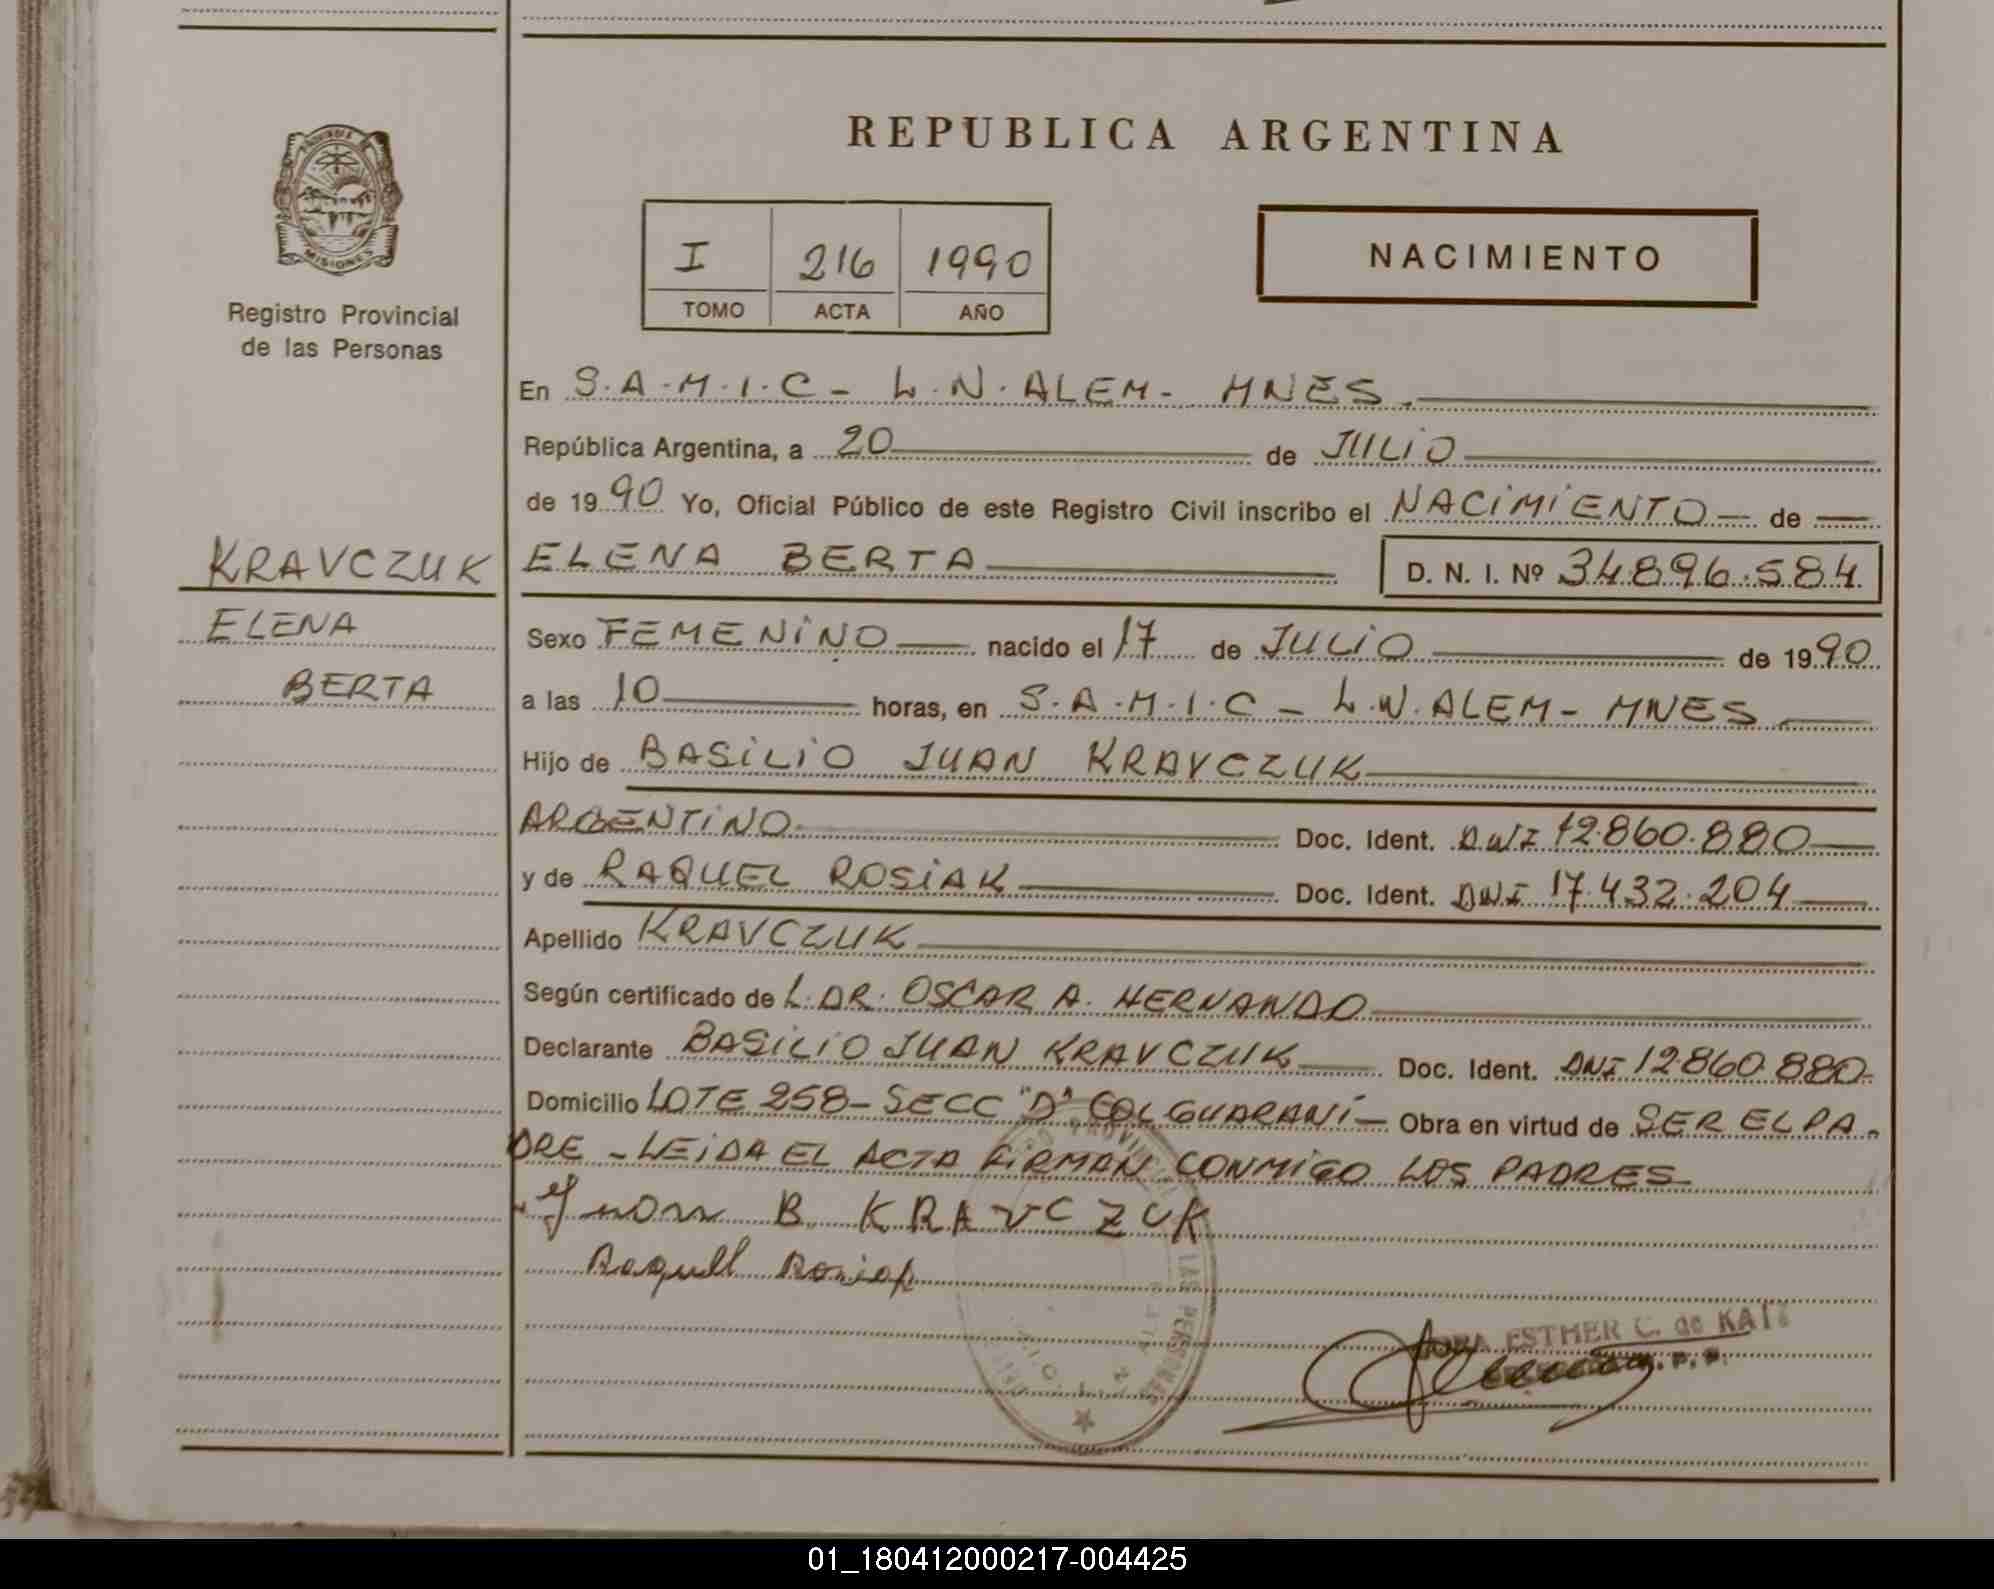 REPUBLICA ARGENTINA
PROVINCIA
MISIONES
Registro Provincial
de las Personas
I 216 1990
TOMO ACTA AÑO
NACIMIENTO
En S.A.M.I.C - L.N.ALEM - MNES.
República Argentina, a 20 de JULIO
de 1990 Yo, Oficial Público de este Registro Civil inscribo el NACIMIENTO de
KRAVCZUK
ELENA BERTA D. N. I. Nº 34.896.584
ELENA
BERTA
Sexo FEMENINO nacido el 17 de JULIO de 1990
a las 10 horas, en S.A.M.I.C - L.N.ALEM - MNES
Hijo de BASILIO JUAN KRAVCZUK
ARGENTINO Doc. Ident. DNI 12.860.880
y de RAQUEL ROSIAK Doc. Ident. DNI 17.432.204
Apellido KRAVCZUK
Según certificado de L. DR. OSCAR A. HERNANDO
Declarante BASILIO JUAN KRAVCZUK Doc. Ident. DNI 12.860.880
Domicilio LOTE 258 - SECC "D" COL GUARANÍ - Obra en virtud de SER EL PA-
DRE - LEIDA EL ACTA FIRMAN CONMIGO LOS PADRES
Juan B. KRAVCZUK
Raquel Rosiak
LAS PERSONAS
ESTHER C. de KATZ
01_180412000217-004425